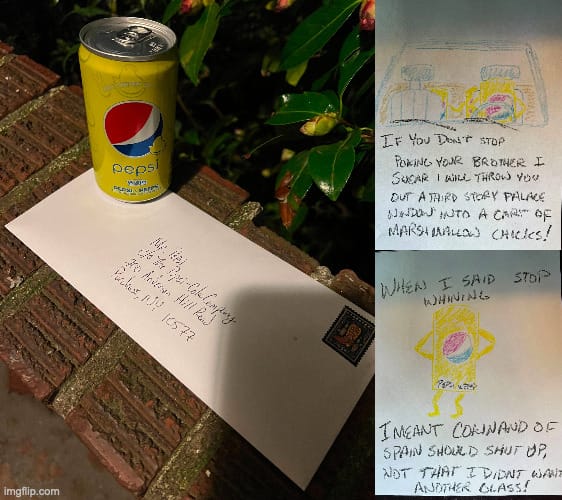 pepsi
PEPSI × PEEPS
700 Anderson Hill Road
Purchase, NY 10577
IF YOU DON'T STOP
POKING YOUR BROTHER I
SWEAR I WILL THROW YOU
OUT A THIRD STORY PALACE
WINDOW INTO A CART OF
MARSHMALLOW CHICKS!
WHEN I SAID STOP
WHINING
I MEANT
OF
SPAIN SHOULD SHUT UP,
NOT THAT I DIDNT WANT
ANOTHER GLASS!
imgflip.com